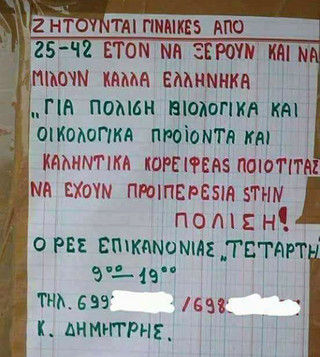 ΖΗΤΟΥΝΤΑΙ ΓΙΝΑΙΚΕS ΑΠΟ
25-42 ΕΤΟΝ ΝΑ ΞΕΡΟΥΝ ΚΑΙ ΝΑ
ΜΙΛΟΥΝ ΚΑΛΛΑ ΕΛΛΗΝΗΚΑ
„ΓΙΑ ΠΟΛΙSΗ ΒΙΟΛΟΓΙΚΑ ΚΑΙ
ΟΙΚΟΛΟΓΙΚΑ ΠΡΟΪΟΝΤΑ ΚΑΙ
ΚΑΛΗΝΤΙΚΑ ΚΟΡΕΙΦΕΑS ΠΟΙΟΤΙΤΑS
ΝΑ ΕΧΟΥΝ ΠΡΟΙΠΕΡΕSΙΑ SΤΗΝ
ΠΟΛΙSΗ!
Ο ΡΕS ΕΠΙΚΑΝΟΝΙΑS „ΤΕΤΑΡΤΗ
9⁰⁰ – 19⁰⁰
ΤΗΛ. 699 /698
Κ. ΔΗΜΗΤΡΗS.